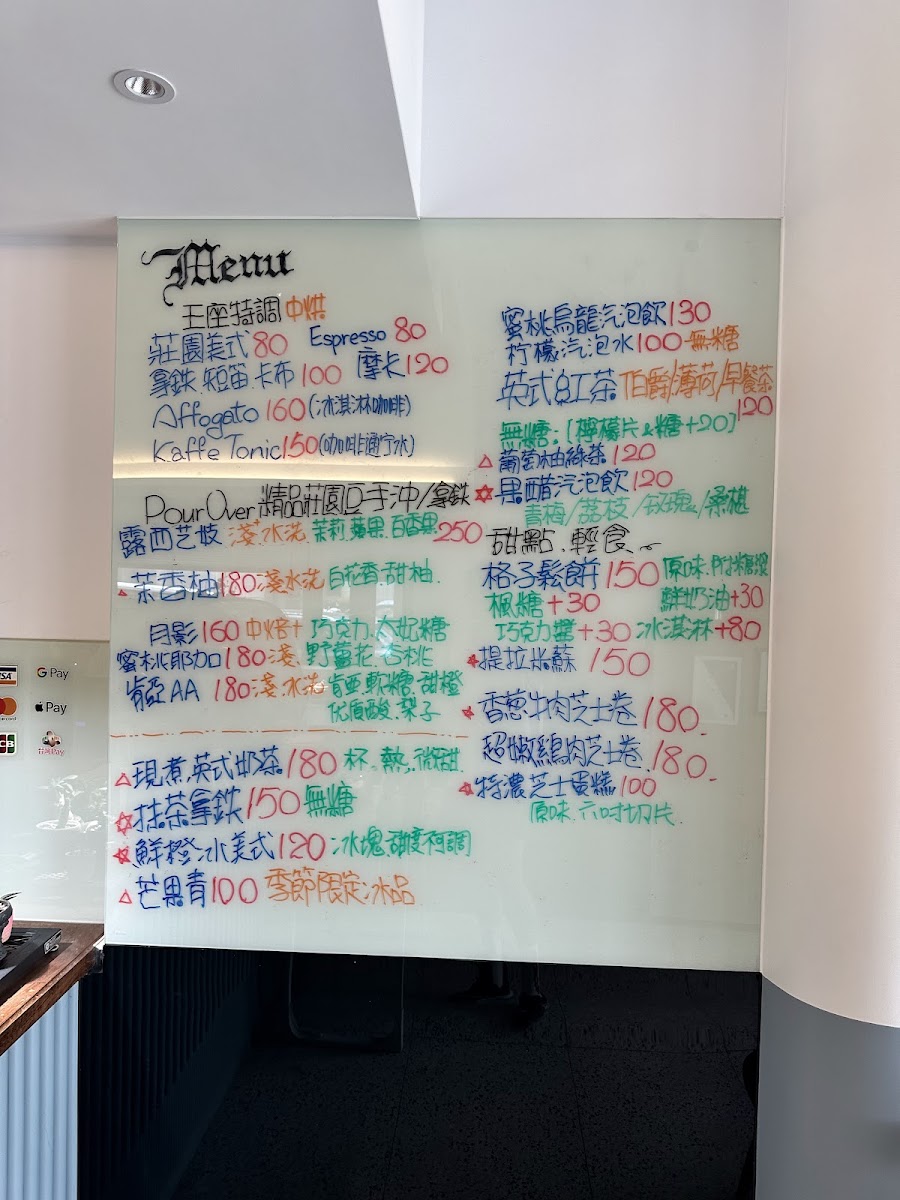 Menu
王座特調 中烘
莊園美式 80 Espresso 80
拿鐵.短笛.卡布 100 摩卡 120
Affogato 160 (冰淇淋咖啡)
Kaffe Tonic 150 (咖啡通宁水)
Pour Over 精品莊園豆手沖/拿鐵
露西芝妓 淺+水洗 茉莉.蘋果.百香果 250
茉香柚 180 淺水洗 白花香.甜柚.
月影 160 中焙+ 巧克力.太妃糖
蜜桃耶加 180 淺 野薑花.杏桃
肯亞AA 180 淺水洗 軟糖.甜橙
优质酸.梨子
現煮.英式奶茶 180 杯.熱.微甜.
抹茶拿鐵 150 無糖
鮮橙冰美式 120 冰塊.甜度.可調
芒果青 100 季節限定.冰品
蜜桃烏龍汽泡飲 130
柠檬汽泡水 100 無糖
英式紅茶 伯爵/薄荷/早餐茶
120
無糖:[檸檬片&糖+20]
葡萄柚綠茶 120
果醋汽泡飲 120
青梅/荔枝/玫瑰/桑椹
甜點.輕食.
格子鬆餅 150 原味.附糖漿
楓糖+30 鮮奶油+30
巧克力醬+30 冰淇淋+80
提拉米蘇 150
香蔥牛肉芝士卷 180.
超嫩鷄肉芝士卷 180.
特濃芝士蛋糕 100
原味.六吋切片.
VISA
G Pay
Pay
JCB
Pay